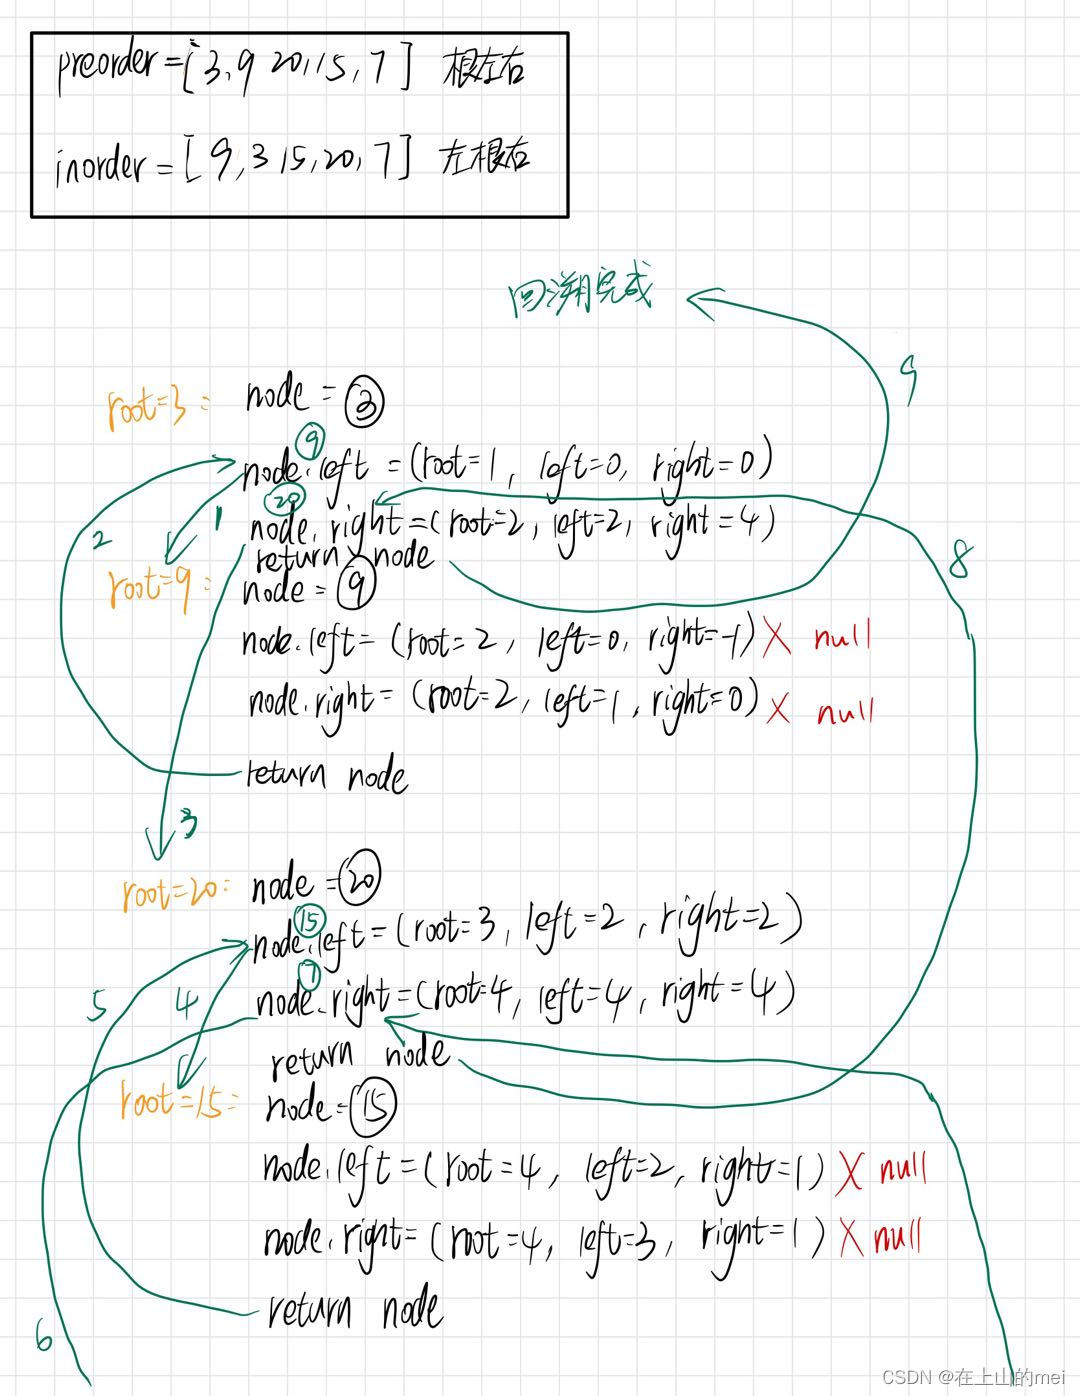 preorder=[3,9 20,15,7] 根左右
inorder=[9,3 15,20,7] 左根右
回溯完成
9
root=3: node=③
⑨
node.left=(root=1, left=0, right=0)
⑳
1
node.right=(root=2, left=2, right=4)
2
return node
8
root=9: node=⑨
node.left=(root=2, left=0, right=-1) X null
node.right=(root=2, left=1, right=0) X null
return node
3
root=20: node=⑳
⑮
node.left=(root=3, left=2, right=2)
⑦
5
4
node.right=(root=4, left=4, right=4)
return node
root=15: node=⑮
node.left=(root=4, left=2, right=1) X null
node.right=(root=4, left=3, right=1) X null
return node
6
CSDN @在上山的mei